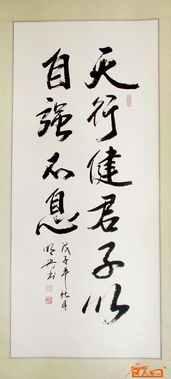 天行健君子以
自强不息
戊子年秋月